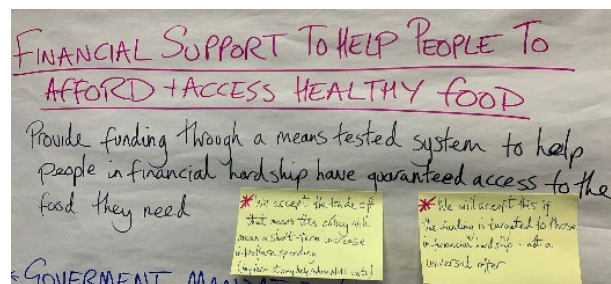 FINANCIAL SUPPORT TO HELP PEOPLE TO
AFFORD + ACCESS HEALTHY FOOD
Provide funding through a means tested system to help
people in financial hardship have guaranteed access to the
food they need
* We accept the trade off
that means this policy will
mean a short-term increase
in welfare spending
* We will accept this if
the funding is targeted to those
in financial hardship - not a
universal offer
GOVERMENT